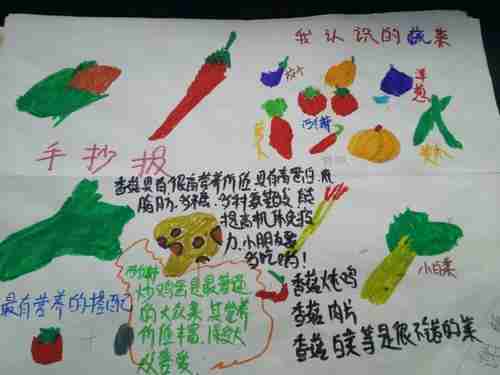 我认识的蔬菜
茄子
洋葱
西红柿
手抄报
香菇具有很高营养价值,具有高蛋白、低
脂肪、多糖、多种氨基酸 能
提高机体免疫
力,小朋友要
多吃哟!
小白菜
最有营养的搭配
西红柿
炒鸡蛋是最普通
的大众菜 其营养
价值丰富,
香菇炖鸡
香菇肉片
香菇白菜等是很不错的菜